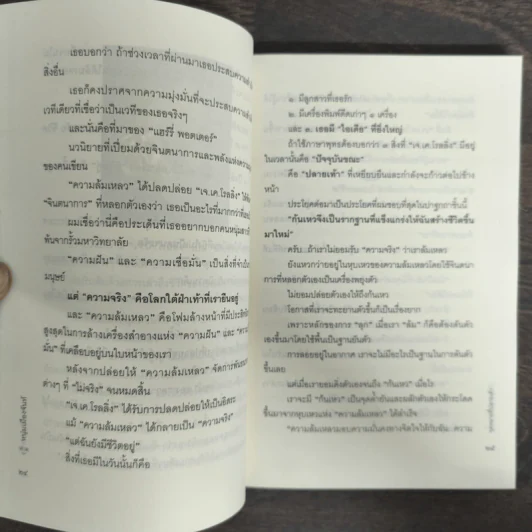 เธอบอกว่า ถ้าช่วงเวลาที่ผ่านมาเธอประสบความสำ
สิ่งอื่น
เธอก็คงปราศจากความมุ่งมั่นที่จะประสบความสำ
เวทีเดียวที่เชื่อว่าเป็นเวทีของเธอจริงๆ
และนั่นคือที่มาของ "แฮร์รี่ พอตเตอร์"
นวนิยายที่เปี่ยมด้วยจินตนาการและพลังแห่งความ
ของคนเขียน
"ความล้มเหลว" ได้ปลดปล่อย "เจ.เค.โรลลิ่ง" ให้
"จินตนาการ" ที่หลอกตัวเองว่า เธอเป็นอะไรที่มากกว่าที่
ผมเชื่อว่านี่คือประเด็นที่เธออยากบอกคนหนุ่มสาว
พ้นจากรั้วมหาวิทยาลัย
"ความฝัน" และ "ความเชื่อมั่น" เป็นสิ่งที่จำเป็น
มนุษย์
แต่ "ความจริง" คือโลกใต้ฝ่าเท้าที่เรายืนอยู่
และ "ความล้มเหลว" คือโฟมล้างหน้าที่มีประสิทธิ
สูงสุดในการล้างเครื่องสำอางแห่ง "ความฝัน" และ "ความ
มั่น" ที่เคลือบอยู่บนใบหน้าของเรา
หลังจากปล่อยให้ "ความล้มเหลว" จัดการพันธนา
ต่างๆ ที่ "ไม่จริง" จนหมดสิ้น
"เจ.เค.โรลลิ่ง" ได้รับการปลดปล่อยให้เป็นอิสระ
แม้ "ความล้มเหลว" ได้กลายเป็น "ความจริง"
"แต่ฉันยังมีชีวิตอยู่"
สิ่งที่เธอมีในวันนั้นก็คือ
๒๔
หนุ่มเมืองจันท์
๑. มีลูกสาวที่เธอรัก
๒. มีเครื่องพิมพ์ดีดเก่าๆ ๑ เครื่อง
และ ๓. เธอมี "ไอเดีย" ที่ยิ่งใหญ่
ถ้าใช้ภาษาพุทธต้องบอกว่า ๓ สิ่งที่ "เจ.เค.โรลลิ่ง" มีอยู่
ในเวลานั้นคือ "ปัจจุบันขณะ"
คือ "ปลายเท้า" ที่เหยียบยืนและกำลังจะก้าวต่อไปข้าง
หน้า
ประโยคต่อมาเป็นประโยคที่ผมชอบที่สุดในปาฐกถาชิ้นนี้
"ก้นเหวจึงเป็นรากฐานที่แข็งแกร่งให้ฉันสร้างชีวิตขึ้น
มาใหม่"
ครับ...ถ้าเราไม่ยอมรับ "ความจริง" ว่าเราล้มเหลว
ยังแหวกว่ายอยู่ในหุบเหวของความล้มเหลวโดยใช้จินตนา
การที่หลอกตัวเองเป็นเครื่องพยุงตัว
ไม่ยอมปล่อยตัวเองให้ถึงก้นเหว
โอกาสที่เราจะทะยานตัวขึ้นก็เป็นเรื่องยาก
เพราะหลักของการ "ลุก" เมื่อเรา "ล้ม" ก็คือต้องดันตัว
เองขึ้นมาโดยใช้พื้นเป็นฐานยันตัว
การลอยอยู่ในอากาศ เราจะไม่มีอะไรเป็นฐานในการดันตัว
ขึ้นเลย
แต่เมื่อเรายอมดิ่งตัวเองจนถึง "ก้นเหว" เมื่อไร
เราจะมี "ก้นเหว" เป็นจุดค้ำยันและผลักดันให้กระโดด
ขึ้นมาจากหุบเหวแห่ง "ความล้มเหลว" ได้สำเร็จ
"ความล้มเหลวมอบความมั่นคงทางจิตใจให้กับฉัน...ความ
๒๕